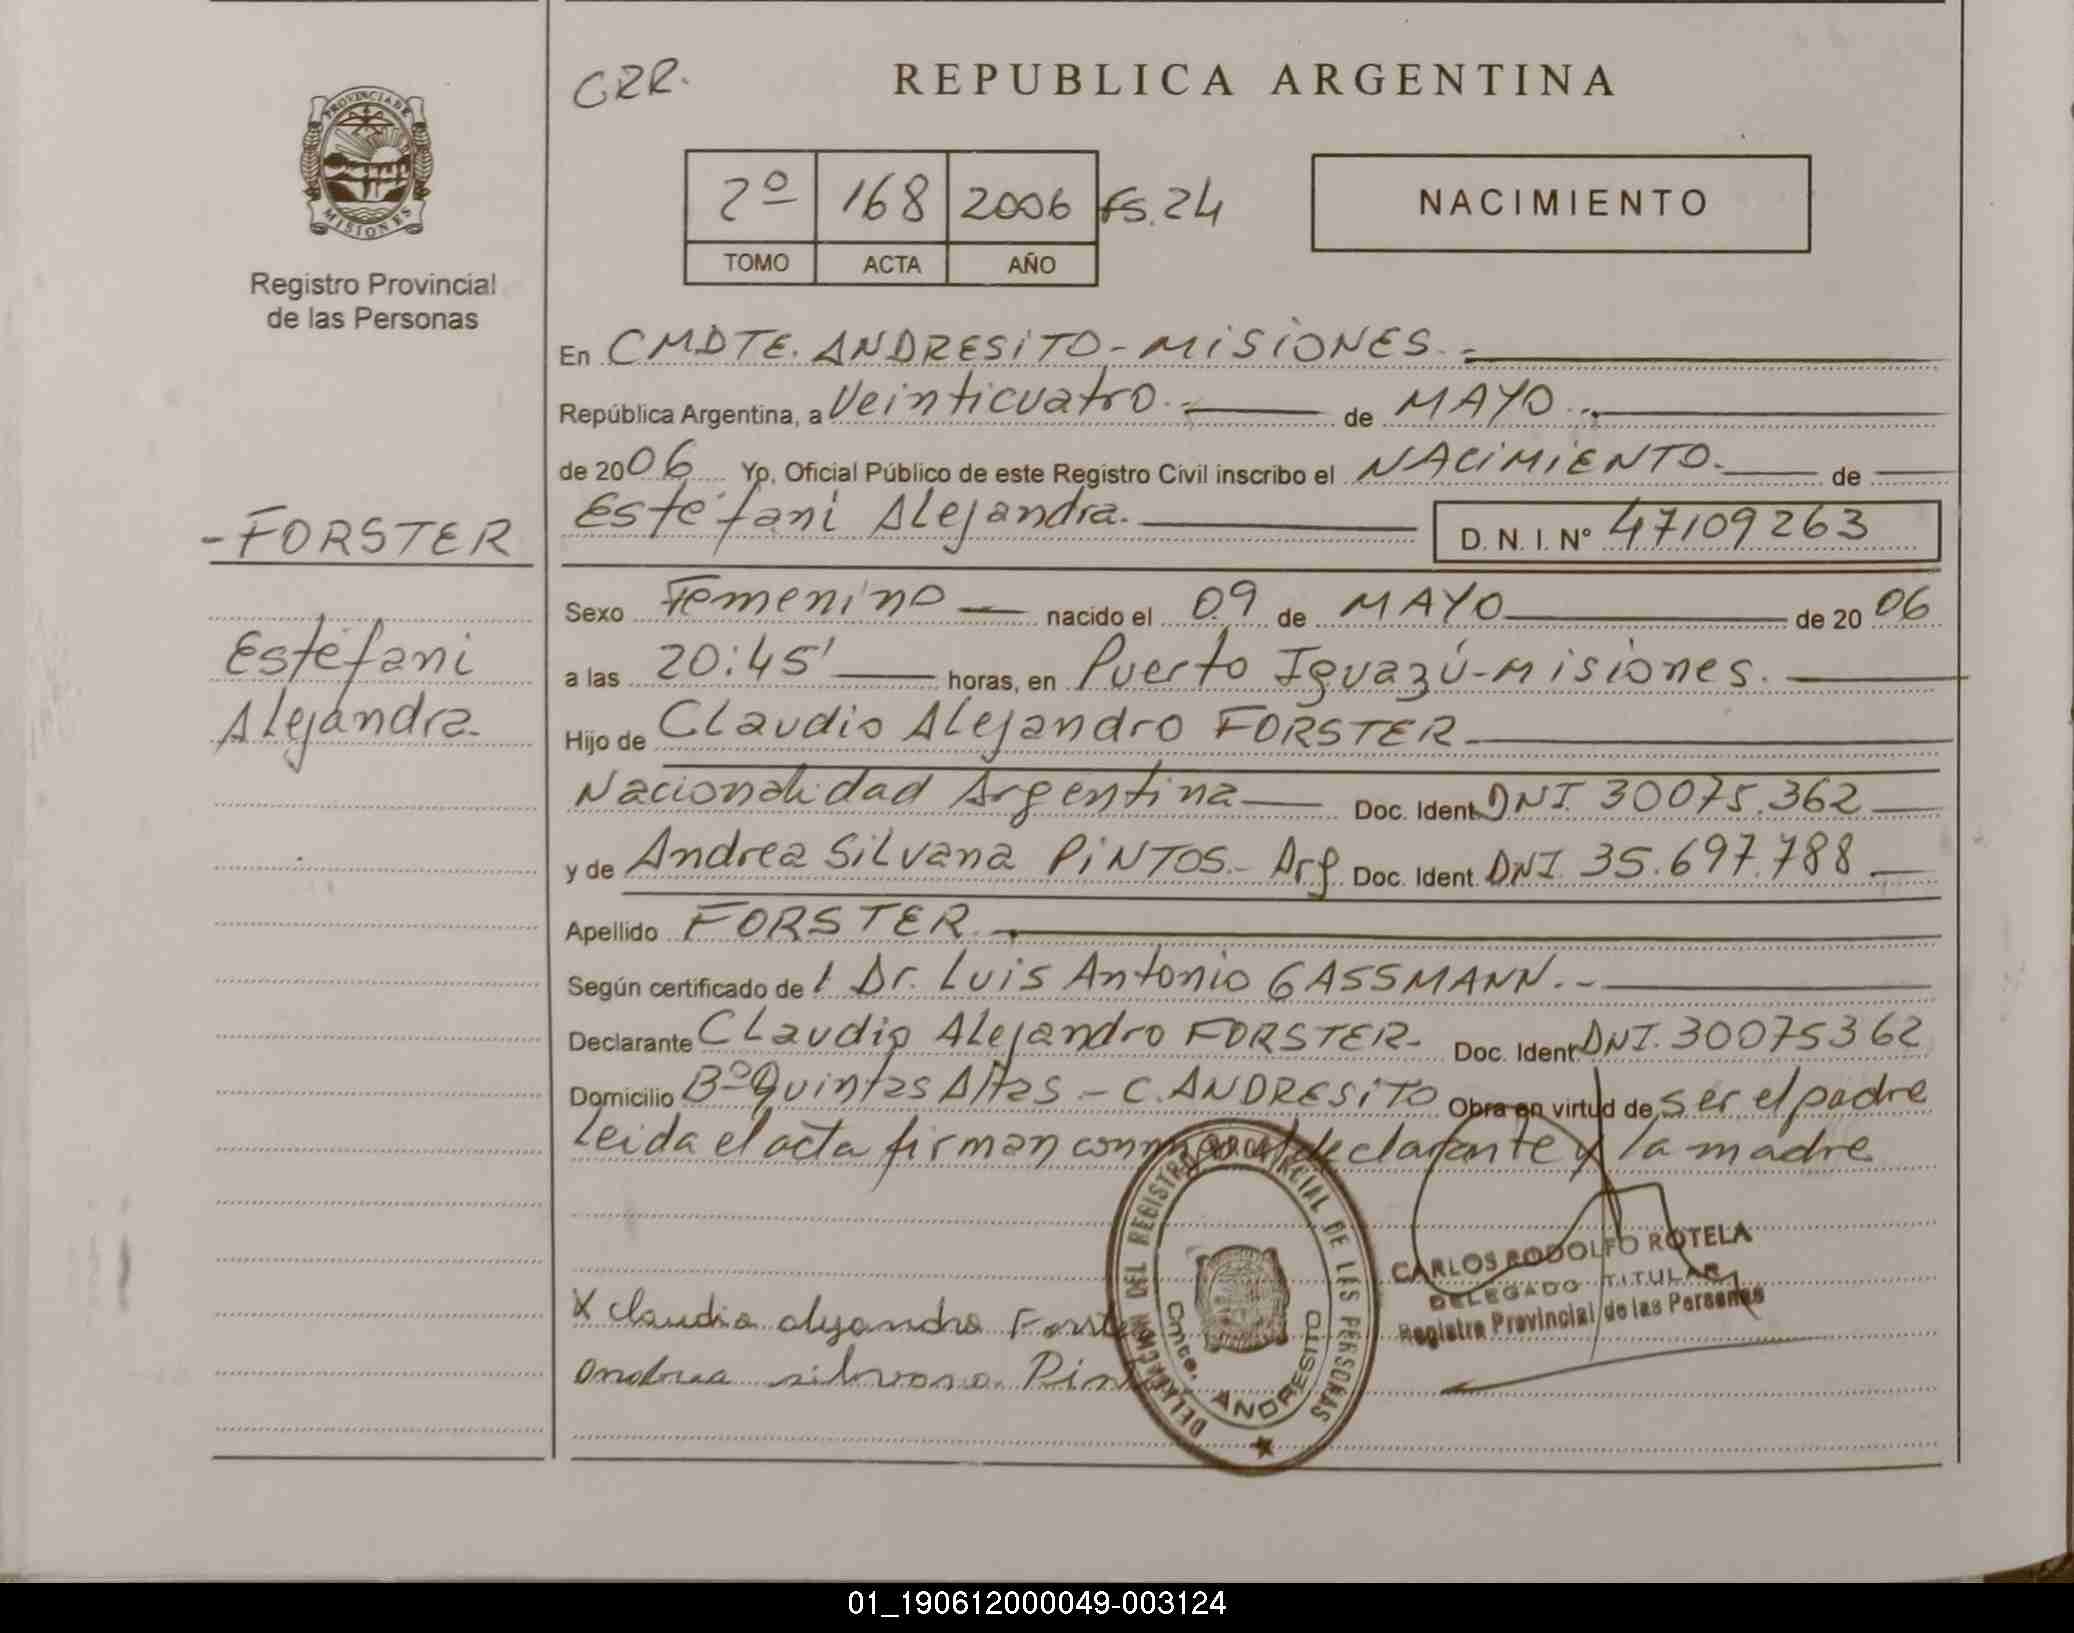 PROVINCIA DE
MISIONES
Registro Provincial
de las Personas
-FORSTER
Estéfani
Alejandra.
CRR.
REPUBLICA ARGENTINA
2º 168 2006 fs.24
TOMO ACTA AÑO
NACIMIENTO
En CMDTE. ANDRESITO-MISIONES.-
República Argentina, a Veinticuatro.- de MAYO.-
de 2006 Yo, Oficial Público de este Registro Civil inscribo el NACIMIENTO. de
Estéfani Alejandra. D. N. I. Nº 47109263
Sexo Femenino nacido el 09 de MAYO de 20 06
a las 20:45' horas, en Puerto Iguazú-Misiones.
Hijo de Claudio Alejandro FORSTER
Nacionalidad Argentina Doc. Ident. DNI. 30075.362
y de Andrea Silvana PINTOS.- Arg Doc. Ident. DNI. 35.697.788
Apellido FORSTER.
Según certificado de l Dr. Luis Antonio GASSMANN.-
Declarante Claudio Alejandro FORSTER- Doc. Ident. DNI. 30075362
Domicilio Bº Quintas Altas - C. ANDRESITO Obra en virtud de ser el padre
Leida el acta firman conmigo el declarante y la madre
DELEGACION DEL REGISTRO PROVINCIAL DE LAS PERSONAS
Cmte. ANDRESITO
CARLOS RODOLFO ROTELA
DELEGADO TITULAR
Registro Provincial de las Personas
X Claudio alejandro Forster
Andrea silvana Pin
01_190612000049-003124